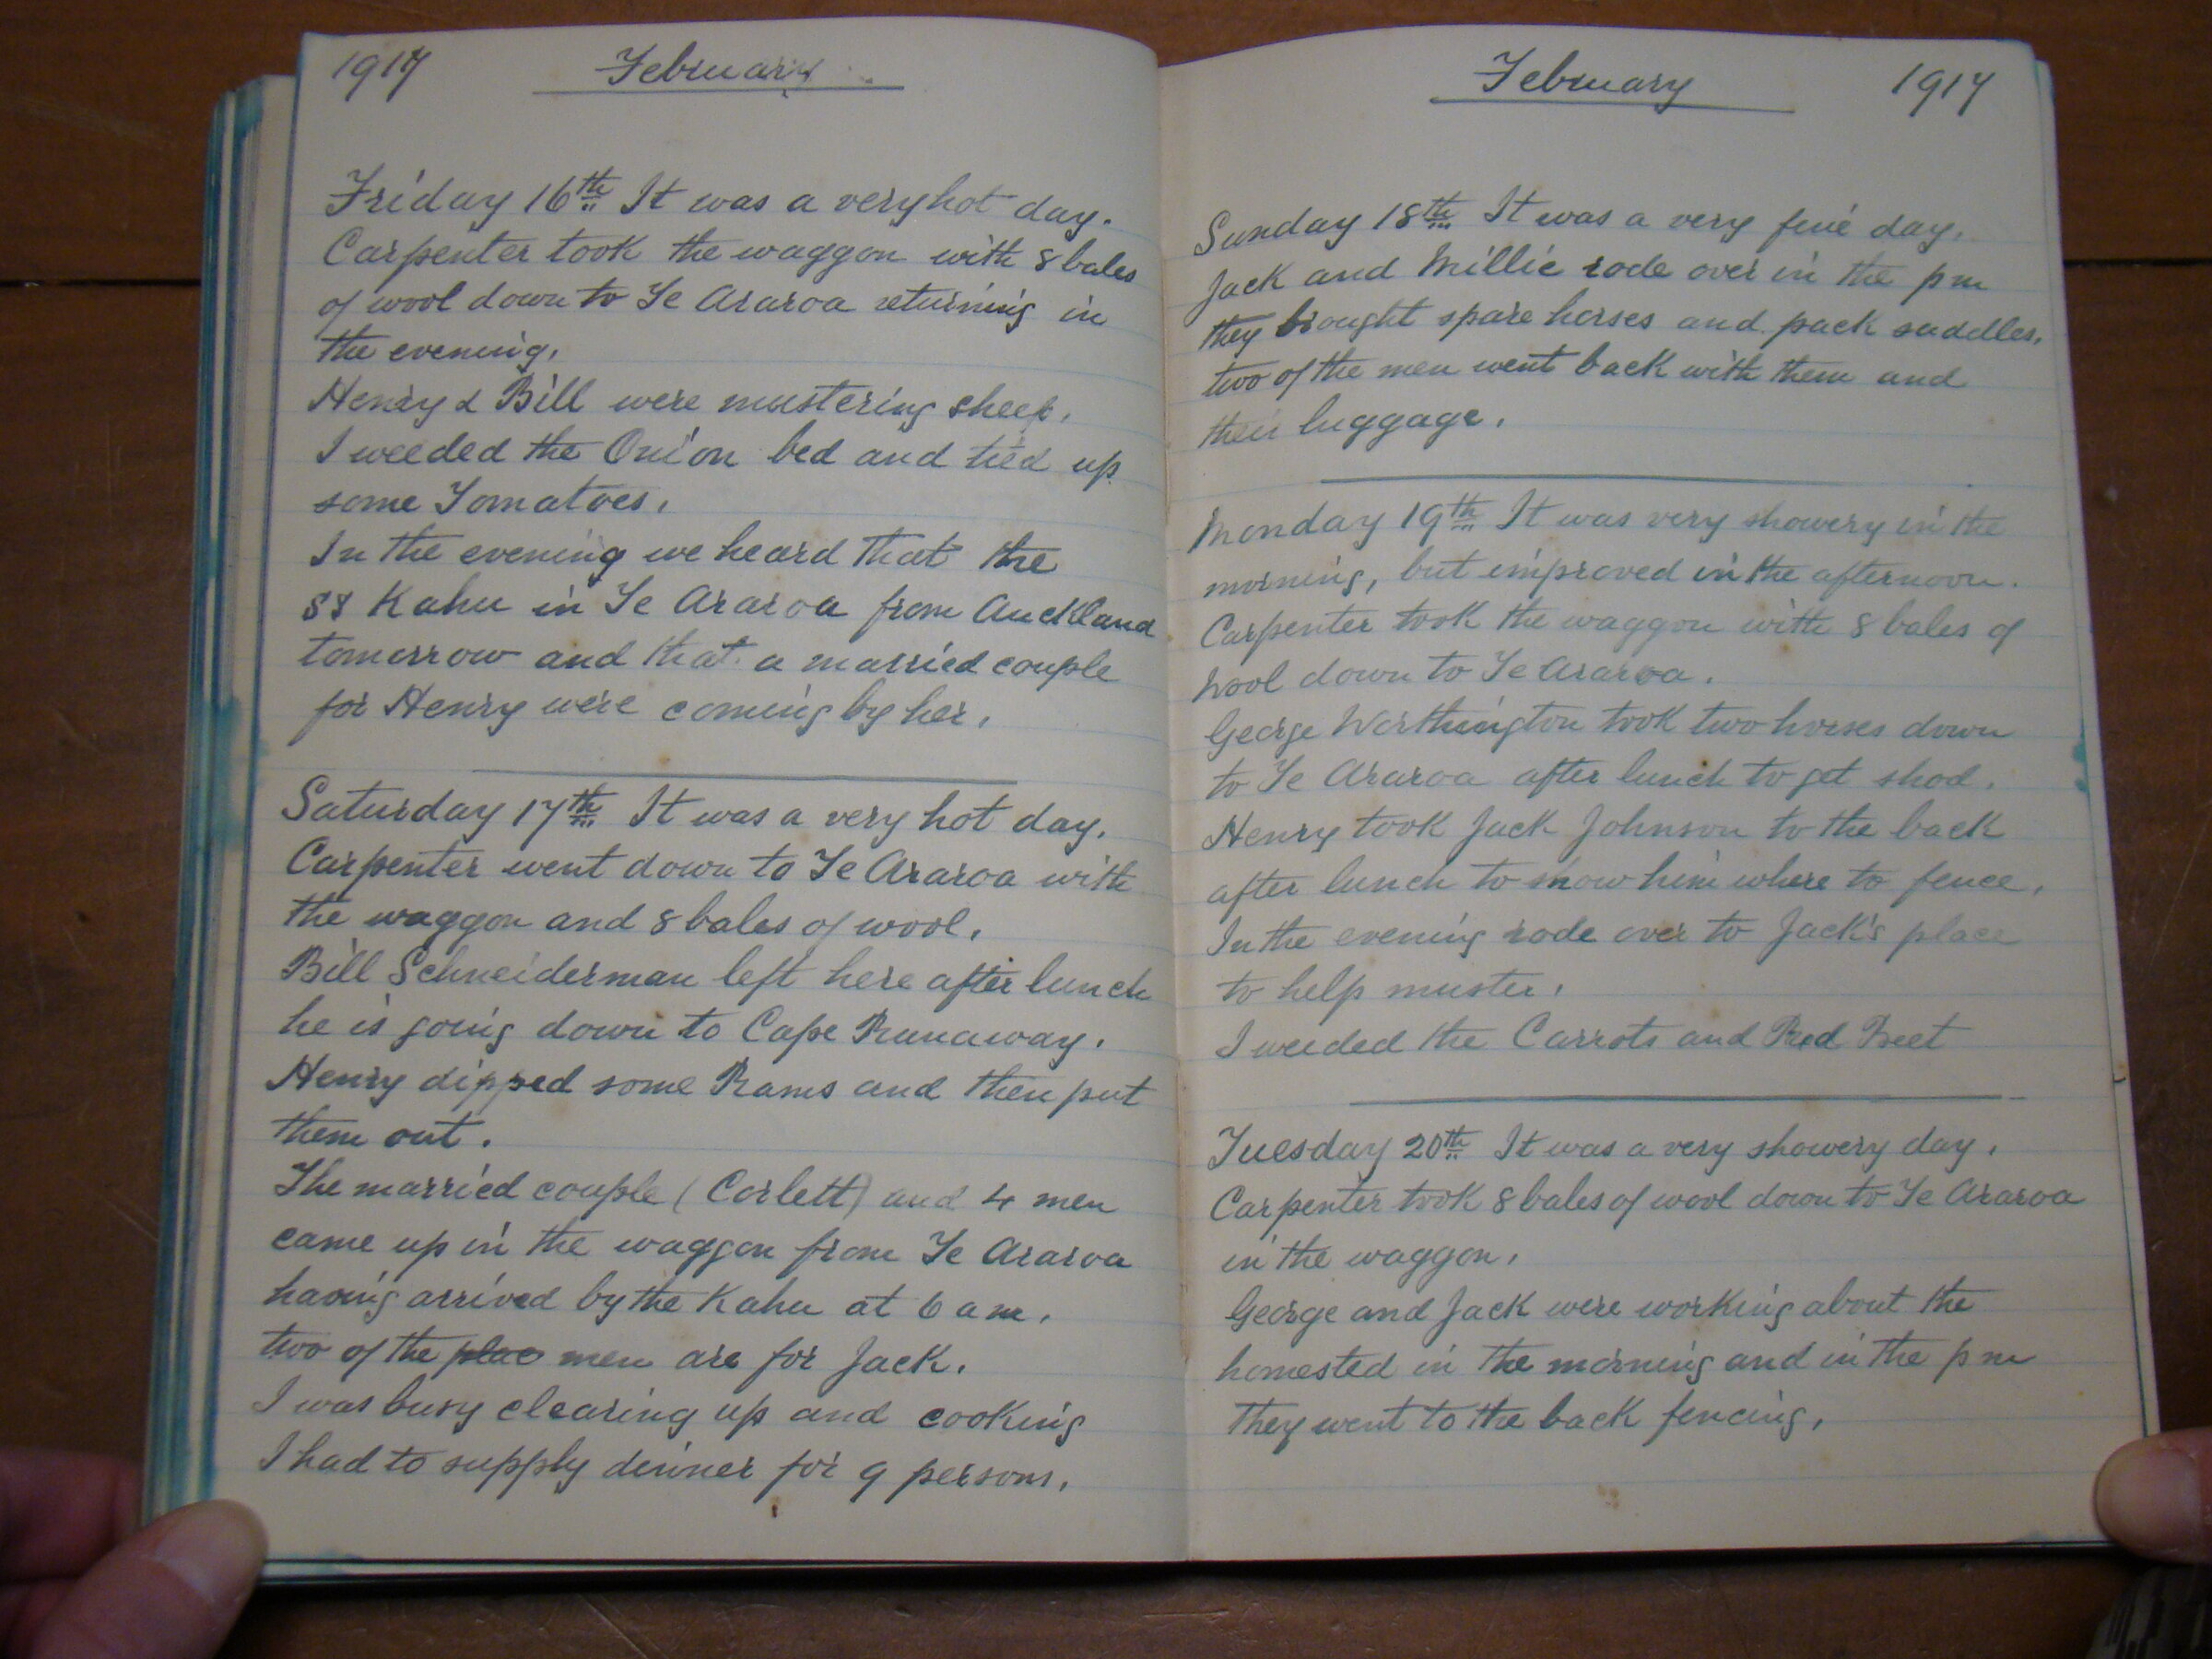 1917 February
Friday 16th It was a very hot day.
Carpenter took the waggon with 8 bales
of wool down to Te Araroa returning in
the evening.
Henry & Bill were mustering sheep.
I weeded the Onion bed and tied up
some Tomatoes.
In the evening we heard that the
SS Kahu in Te Araroa from Auckland
tomorrow and that a married couple
for Henry were coming by her.
Saturday 17th It was a very hot day.
Carpenter went down to Te Araroa with
the waggon and 8 bales of wool.
Bill Schneiderman left here after lunch
he is going down to Cape Runaway.
Henry dipped some Rams and then put
them out.
The married couple (Corlett) and 4 men
came up in the waggon from Te Araroa
having arrived by the Kahu at 6 am.
two of the plac men are for Jack.
I was busy clearing up and cooking
I had to supply dinner for 9 persons.
February 1917
Sunday 18th It was a very fine day.
Jack and Millie rode over in the pm
they brought spare horses and pack saddles.
two of the men went back with them and
their luggage.
Monday 19th It was very showery in the
morning, but improved in the afternoon.
Carpenter took the waggon with 8 bales of
wool down to Te Araroa.
George Worthington took two horses down
to Te Araroa after lunch to get shod.
Henry took Jack Johnson to the back
after lunch to show him where to fence.
In the evening rode over to Jack's place
to help muster.
I weeded the Carrots and Red Beet
Tuesday 20th It was a very showery day.
Carpenter took 8 bales of wool down to Te Araroa
in the waggon.
George and Jack were working about the
homested in the morning and in the pm
they went to the back fencing.